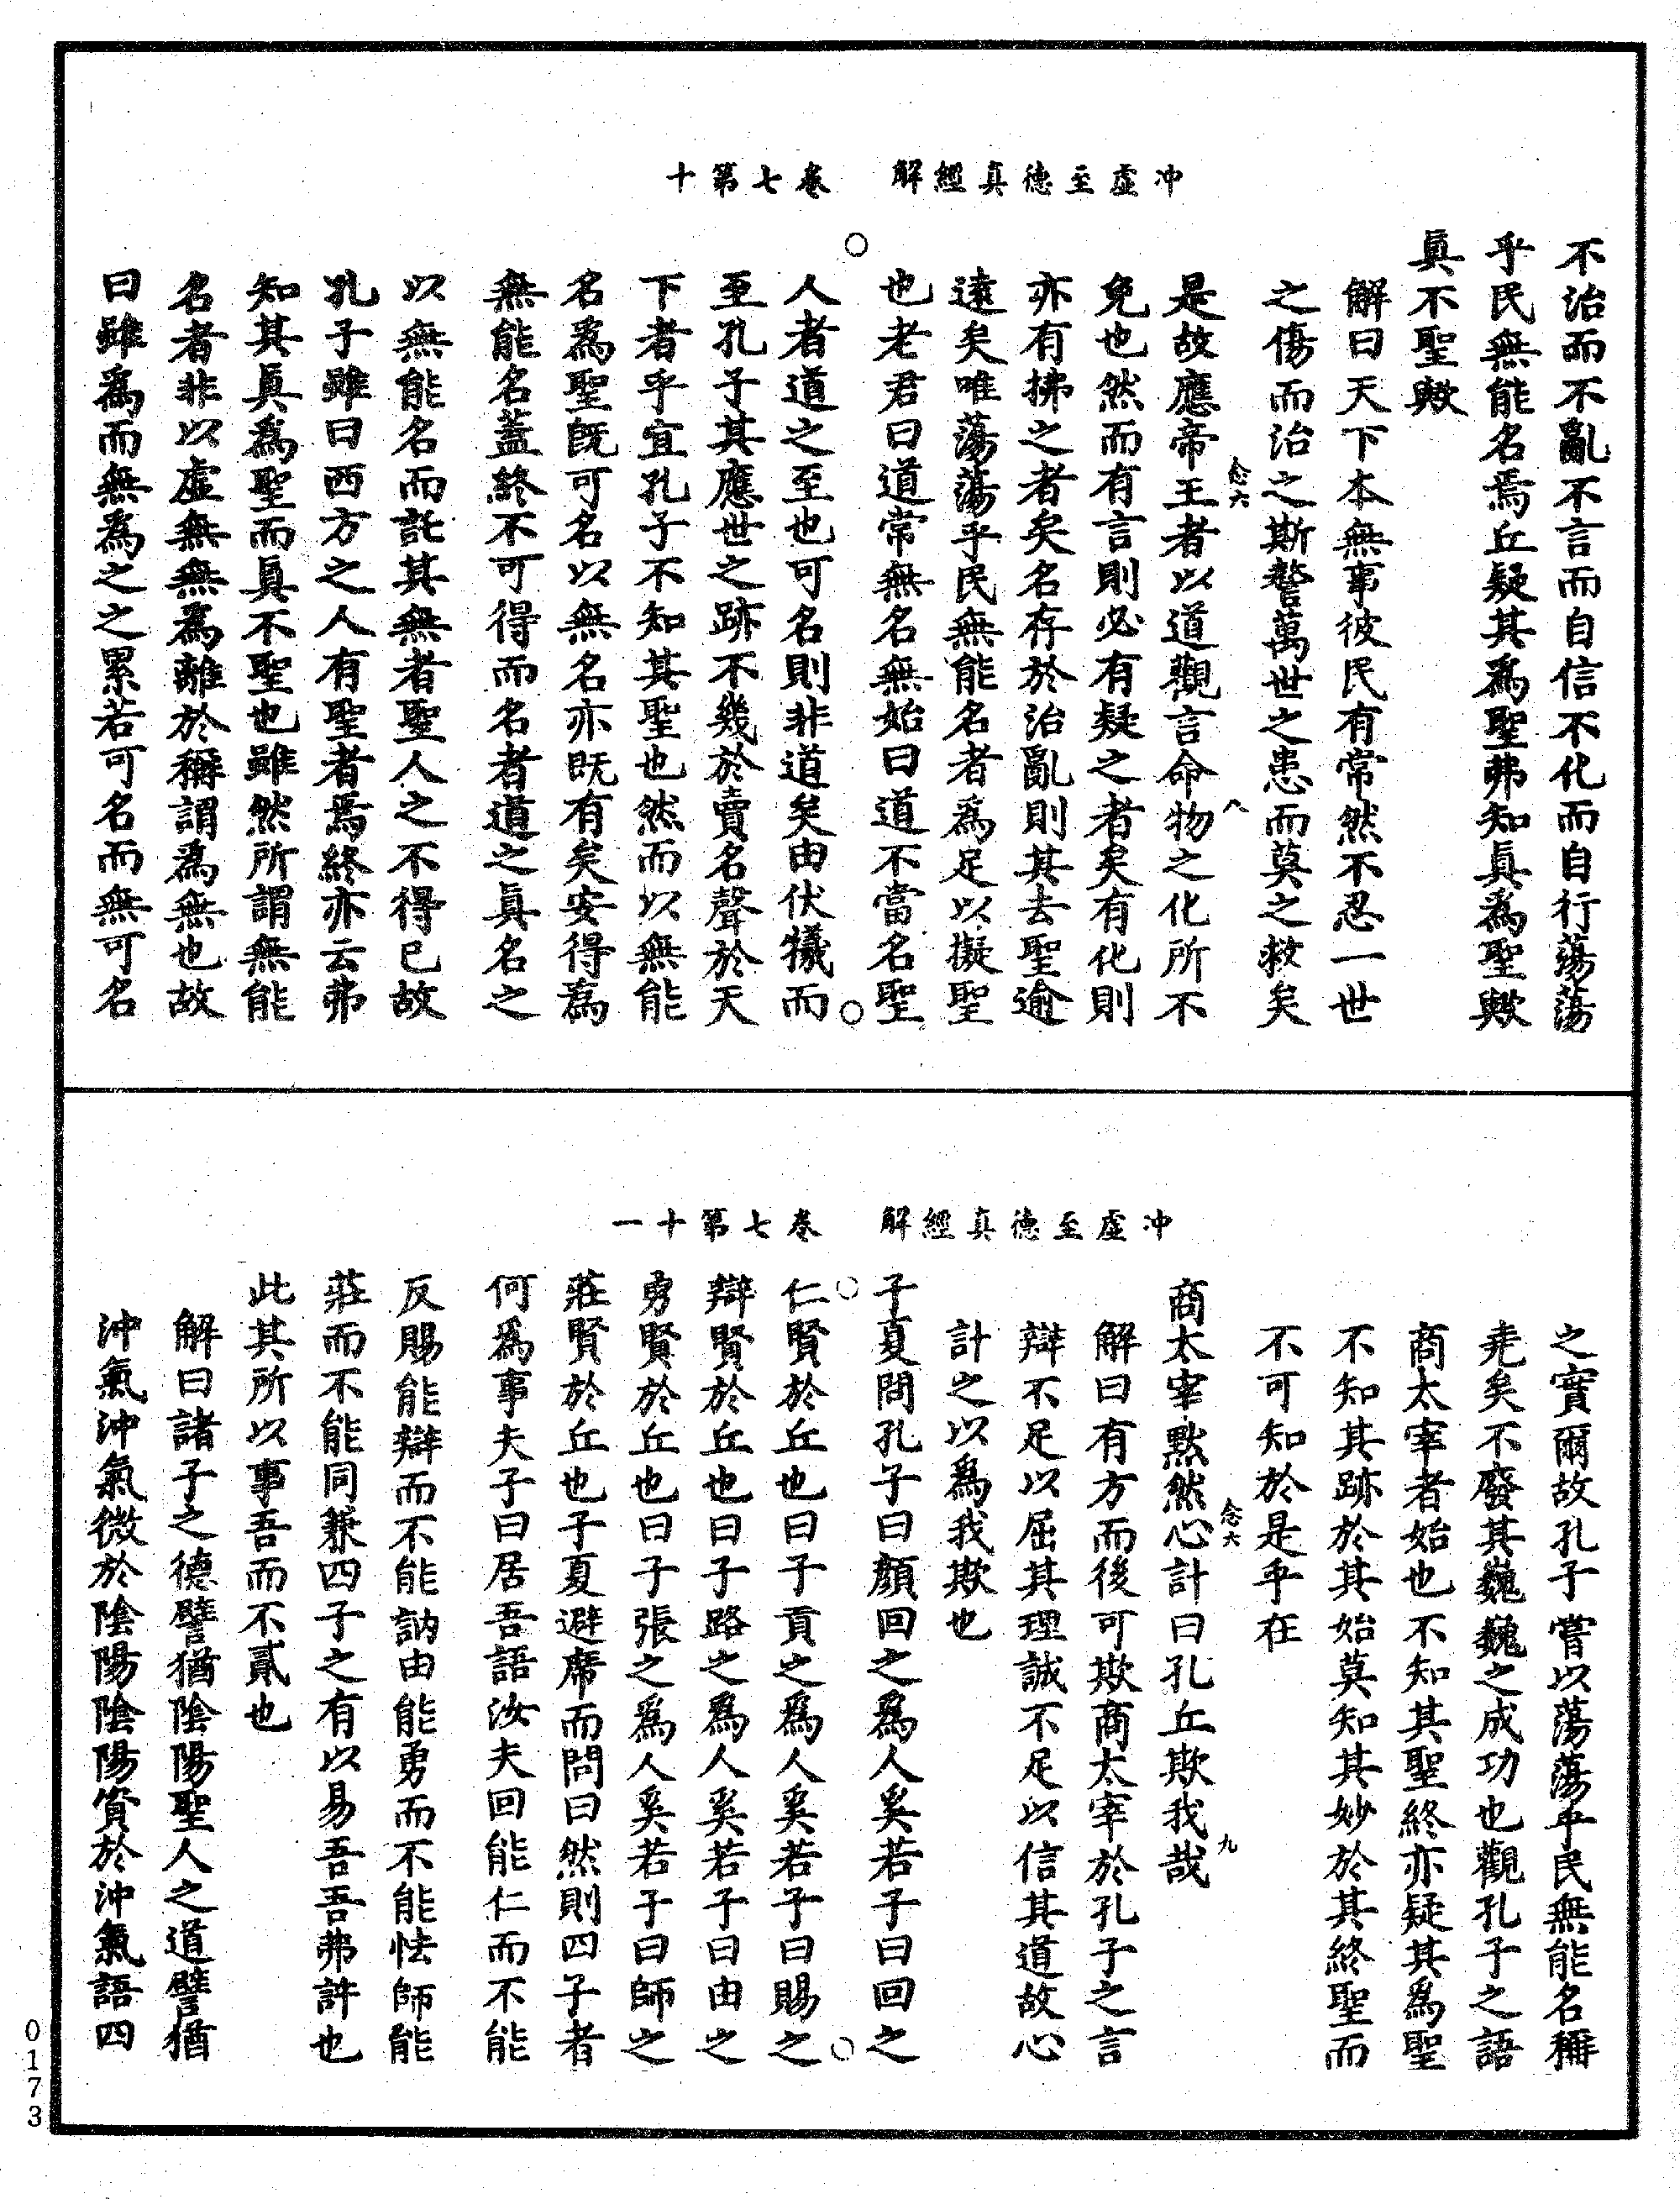 冲虛至德真經解　卷七第十
不治而不亂不言而自信不化而自行蕩蕩
乎民無能名焉丘疑其爲聖弗知真爲聖歟
真不聖歟
解曰天下本無事彼民有常然不忍一世
之傷而治之斯謷萬世之患而莫之救矣
念六
八
是故應帝王者以道觀言命物之化所不
免也然而有言則必有疑之者矣有化則
亦有拂之者矣名存於治亂則其去聖逾
遠矣唯蕩蕩乎民無能名者爲足以擬聖
也老君曰道常無名無始曰道不當名聖
人者道之至也可名則非道矣由伏犧而
至孔子其應世之跡不幾於賣名聲於天
下者乎宜孔子不知其聖也然而以無能
名爲聖旣可名以無名亦旣有矣安得爲
無能名蓋終不可得而名者道之真名之
以無能名而託其無者聖人之不得已故
孔子雖曰西方之人有聖者焉終亦云弗
知其真爲聖而真不聖也雖然所謂無能
名者非以虛無無爲離於稱謂爲無也故
曰雖爲而無爲之之累若可名而無可名
冲虛至德真經解　卷七第十一
之實爾故孔子嘗以蕩蕩乎民無能名稱
堯矣不廢其巍巍之成功也觀孔子之語
商太宰者始也不知其聖終亦疑其爲聖
不知其跡於其始莫知其妙於其終聖而
不可知於是乎在
念六
九
商太宰黙然心計曰孔丘欺我哉
解曰有方而後可欺商太宰於孔子之言
辯不足以屈其理誠不足以信其道故心
計之以爲我欺也
子夏問孔子曰顏回之爲人奚若子曰回之
仁賢於丘也曰子貢之爲人奚若子曰賜之
辯賢於丘也曰子路之爲人奚若子曰由之
勇賢於丘也曰子張之爲人奚若子曰師之
莊賢於丘也子夏避席而問曰然則四子者
何爲事夫子曰居吾語汝夫回能仁而不能
反賜能辯而不能訥由能勇而不能怯師能
莊而不能同兼四子之有以易吾吾弗許也
此其所以事吾而不貳也
解曰諸子之德譬猶陰陽聖人之道譬猶
沖氣沖氣微於陰陽陰陽資於沖氣語四
0173